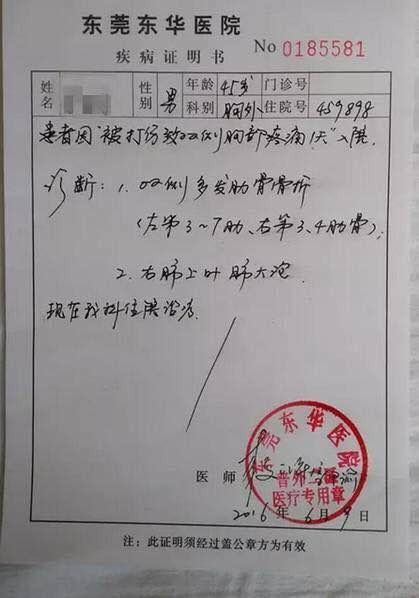 东莞东华医院
疾病证明书 No 0185581
姓名 性别 男 年龄 45岁 门诊号
科别 胸外 住院号 459898
患者因“被打伤致双侧胸部疼痛1天”入院.
诊断：1. 双侧多发肋骨骨折
(左第3~7肋、右第3、4肋骨).
2. 右肺上叶肺大泡
现在我科住院治疗.
东莞东华医院
普外二
医疗专用章
医师
2016年6月9日
注：此证明须经过盖公章方为有效